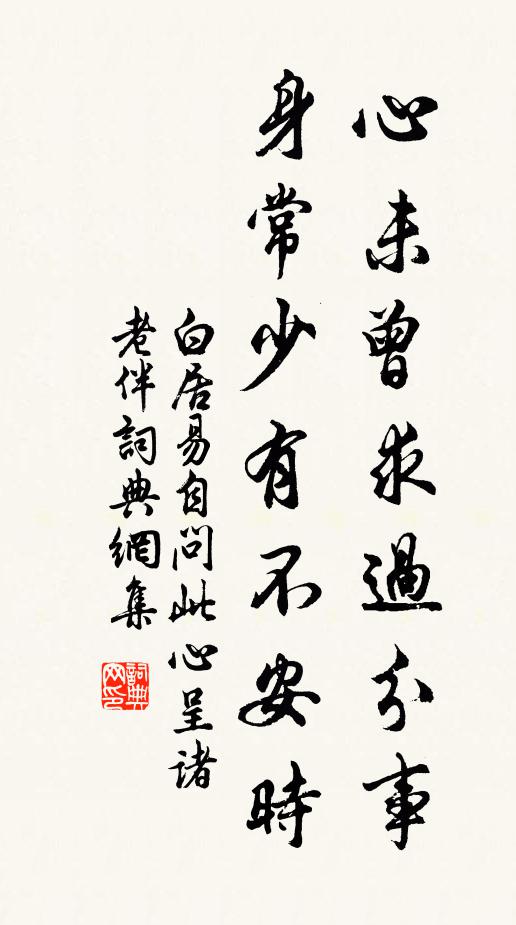 心未曾求過分事
身常少有不安時
白居易自問此心呈諸
老伴詞典網集
詞典
网印